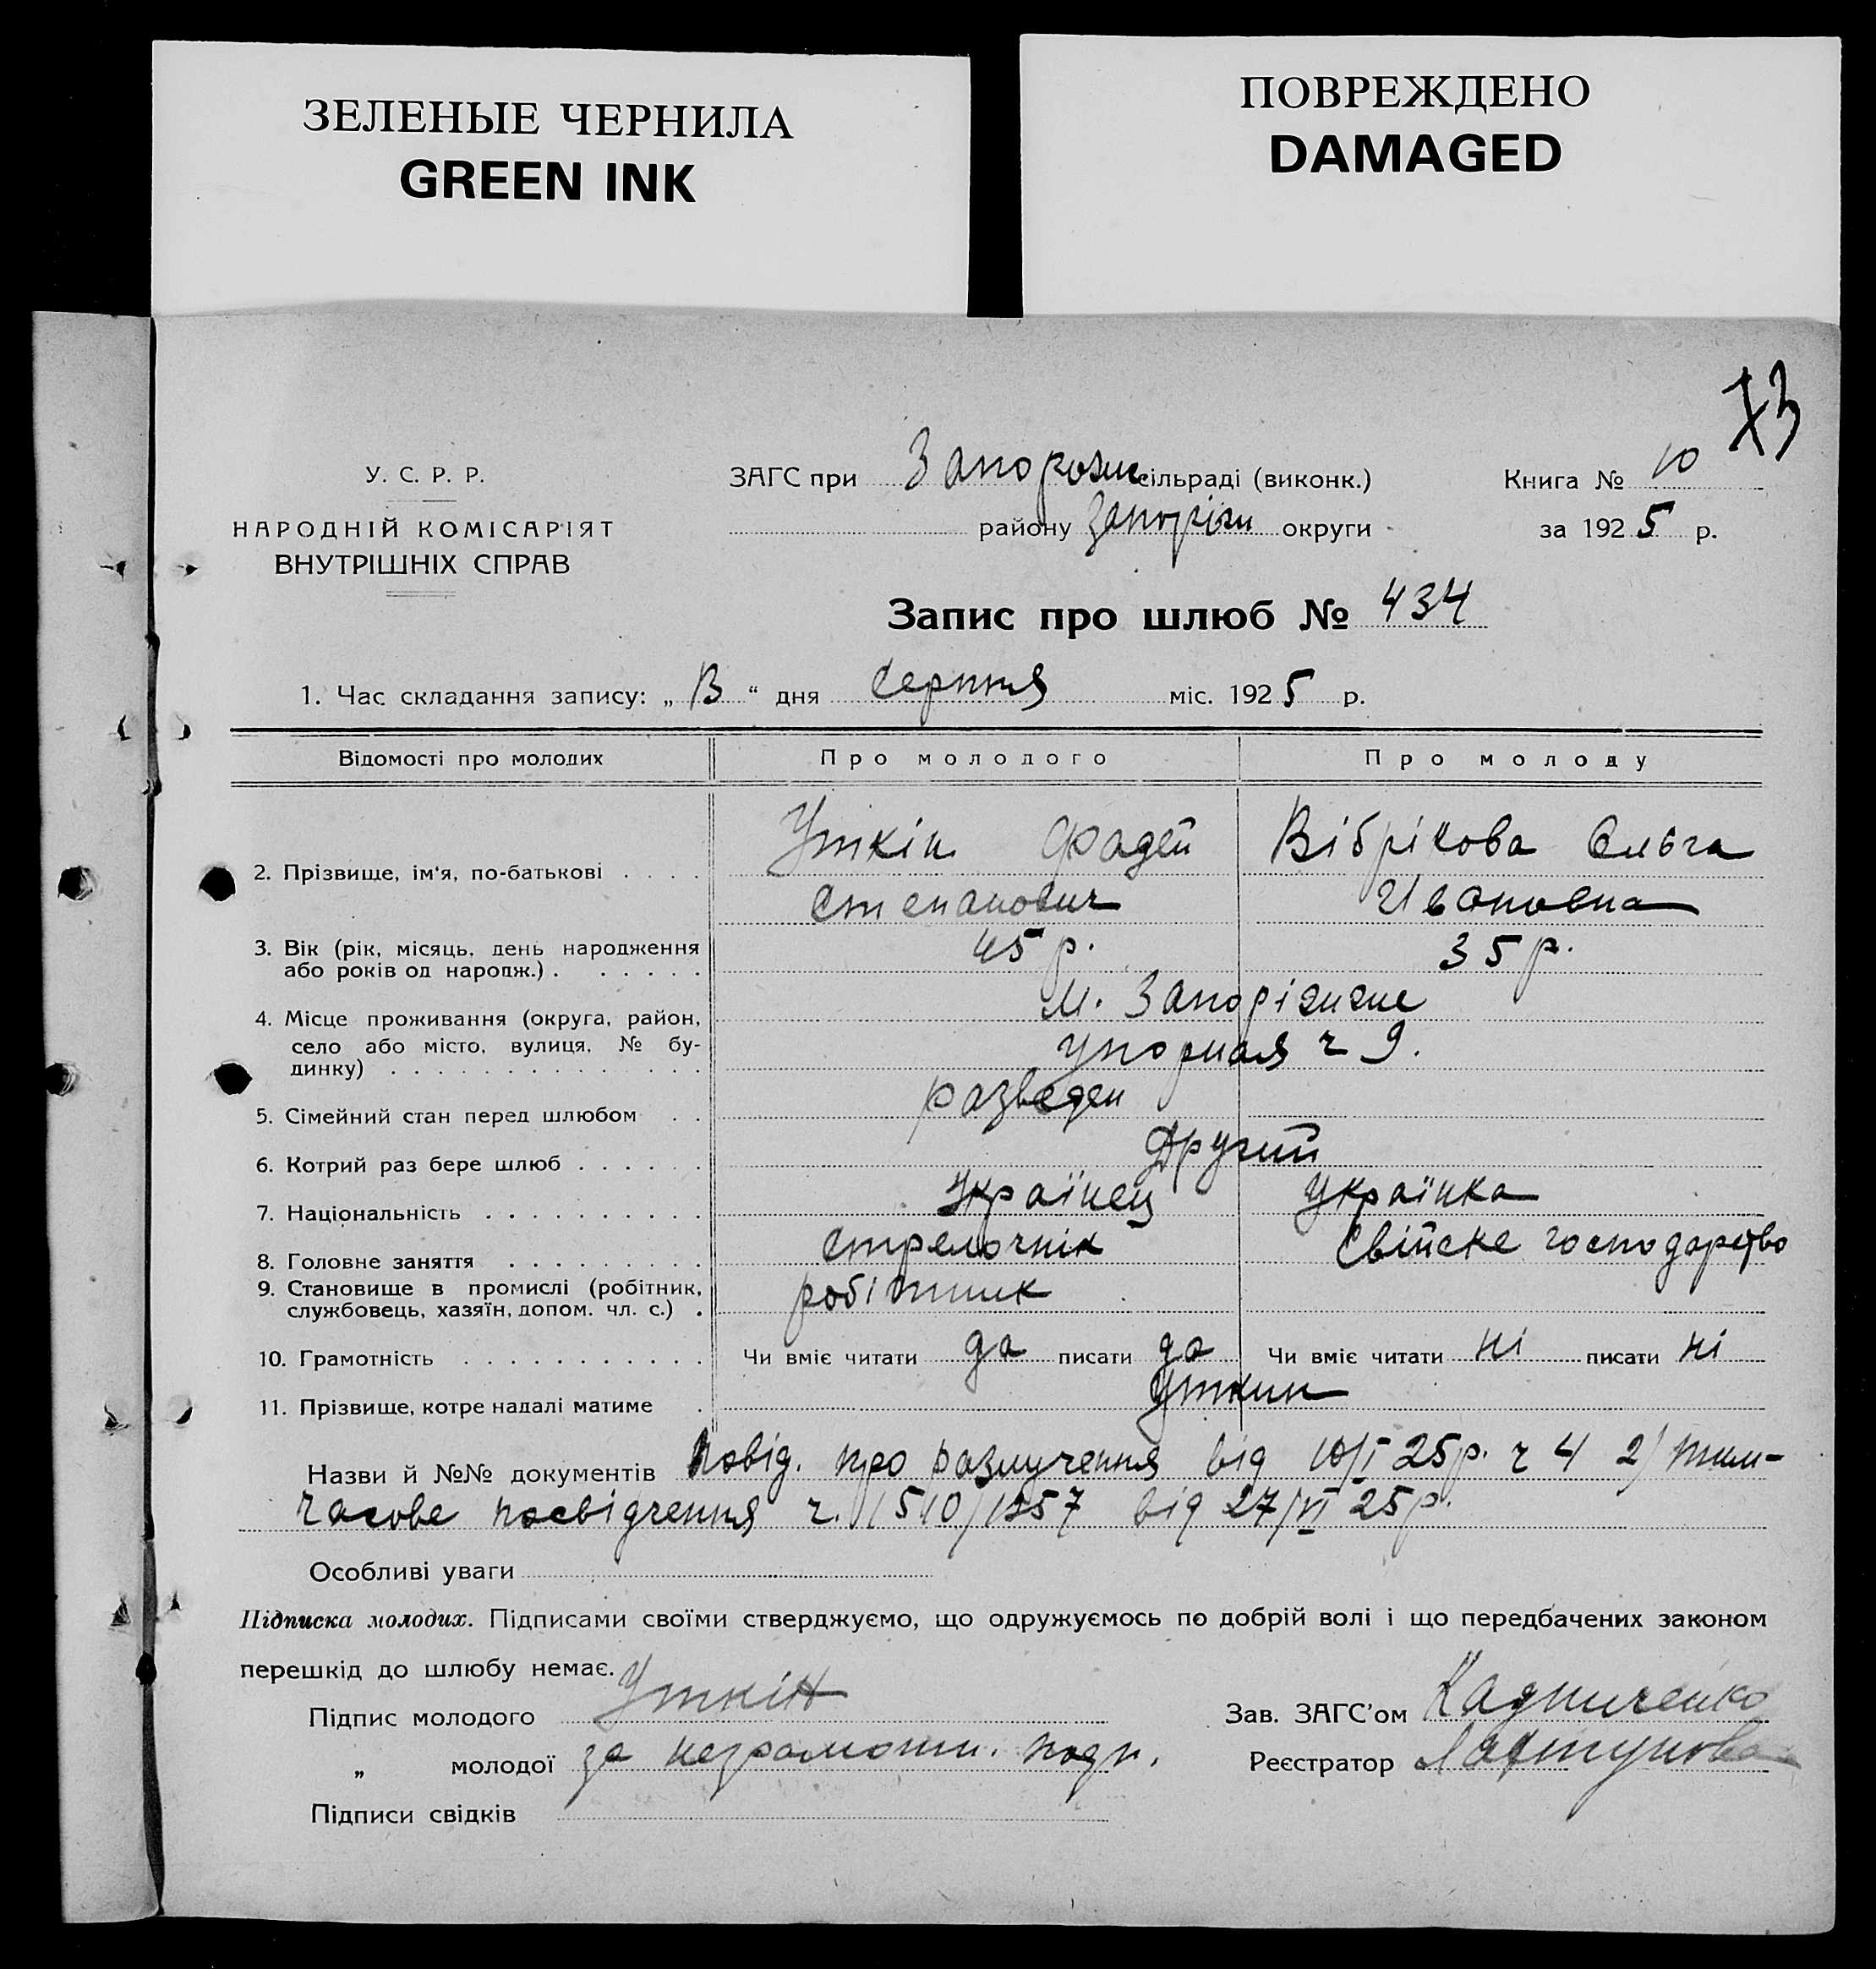 ЗЕЛЕНЫЕ ЧЕРНИЛА
GREEN INK
ПОВРЕЖДЕНО
DAMAGED
73
У. С. Р. Р.
НАРОДНІЙ КОМІСАРІЯТ
ВНУТРІШНІХ СПРАВ
ЗАГС при Запорожс сільраді (виконк.)
району Запоріж округи
Книга № 10
за 1925 р.
Запис про шлюб № 434
1. Час складання запису: „ “ дня Серпня міс. 1925 р.
Відомості про молодих Про молодого Про молоду
2. Прізвище, ім'я, по-батькові Уткін Фадей Вібрікова Ольга
Степанович Ивановна
3. Вік (рік, місяць, день народження 45 р. 35 р.
або років од народж.)
4. Місце проживання (округа, район, М. Запоріжже
село або місто, вулиця, № бу- ч 9.
динку)
5. Сімейний стан перед шлюбом разведен
6. Котрий раз бере шлюб Другий
7. Національність Українец Українка
8. Головне заняття Стрелочнік Свійске господарство
9. Становище в промислі (робітник, робітник
службовець, хазяїн, допом. чл. с.)
10. Грамотність Чи вміє читати да писати да Чи вміє читати ні писати ні
11. Прізвище, котре надалі матиме Уткин
Назви й №№ документів Повід. про разлучення від 10/I 25р. ч 4 2/ тим-
часове посвідчення ч. 1510/1257 від 27/VI 25р.
Особливі уваги
Підписка молодих. Підписами своїми стверджуємо, що одружуємось по добрій волі і що передбачених законом
перешкід до шлюбу немає.
Підпис молодого Уткін
Зав. ЗАГС'ом
„ молодої за неграмотн. подп.
Реєстратор
Підписи свідків